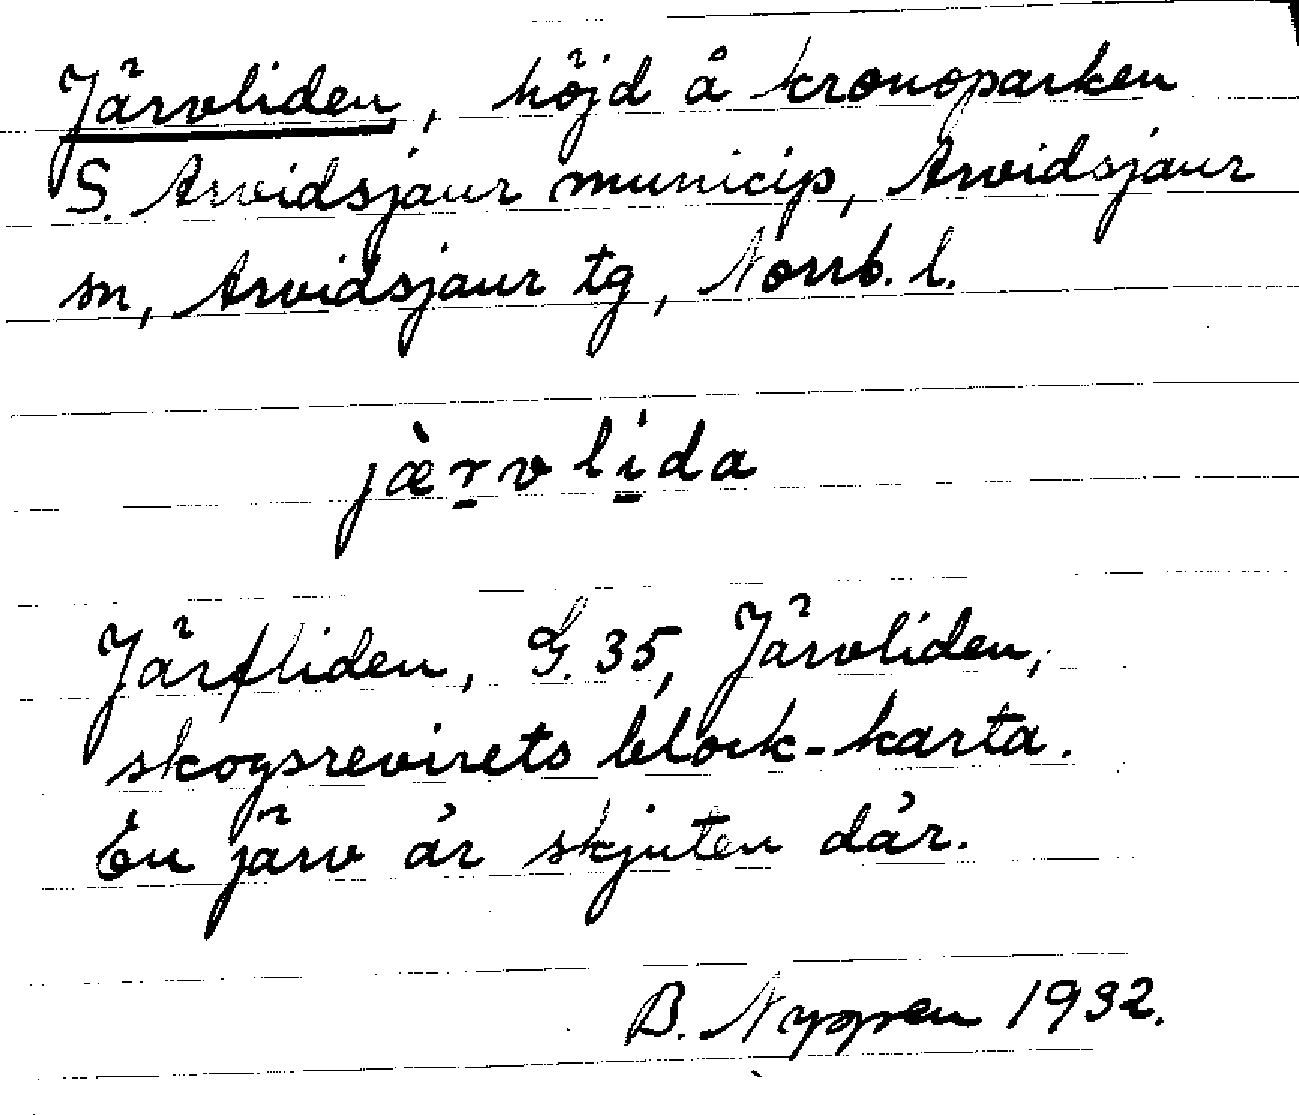 Järvliden, höjd å kronoparken
S. Arvidsjaur municip, Arvidsjaur
sn, Arvidsjaur tg, Norrb. l.
jæ̀rvlida
Järfliden, G. 35, Järvliden,
skogsrevirets block-karta.
En järv är skjuten där.
B. Nyppen 1932.